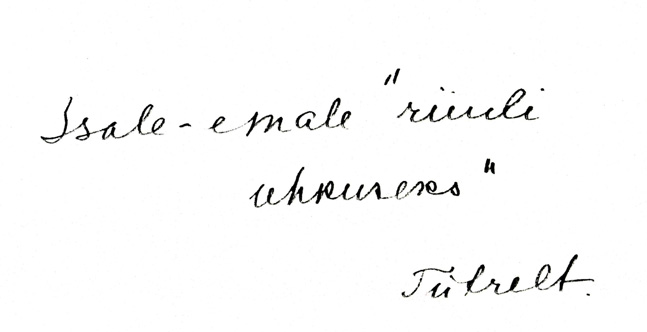 Isale-emale "riiuli
uhkuseks"
Tütrelt.